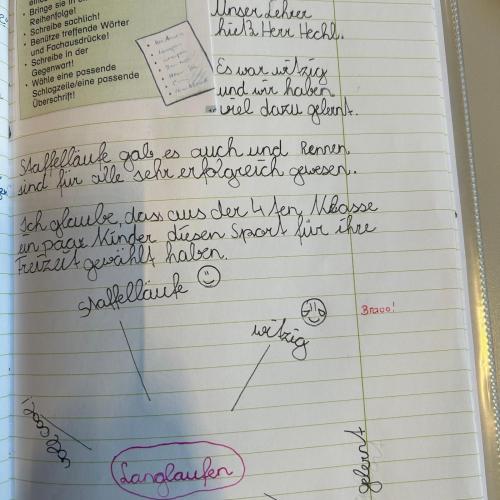 Bringe sie in
Reihenfolge!
• Schreibe sachlich!
• Benütze treffende Wörter
und Fachausdrücke!
• Schreibe in der
Gegenwart!
• Wähle eine passende
Schlagzeile/eine passende
Überschrift!
Unser Lehrer
hieß Herr Hechl.
Es war witzig
und wir haben
viel dazu gelernt.
Staffelläufe gab es auch und Rennen
sind für alle sehr erfolgreich gewesen.
Ich glaube, dass aus der 4ten Klasse
ein paar Kinder diesen Sport für ihre
Freizeit gewählt haben.
Staffelläufe
witzig
Bravo!
voll cool!
Langlaufen
gelernt